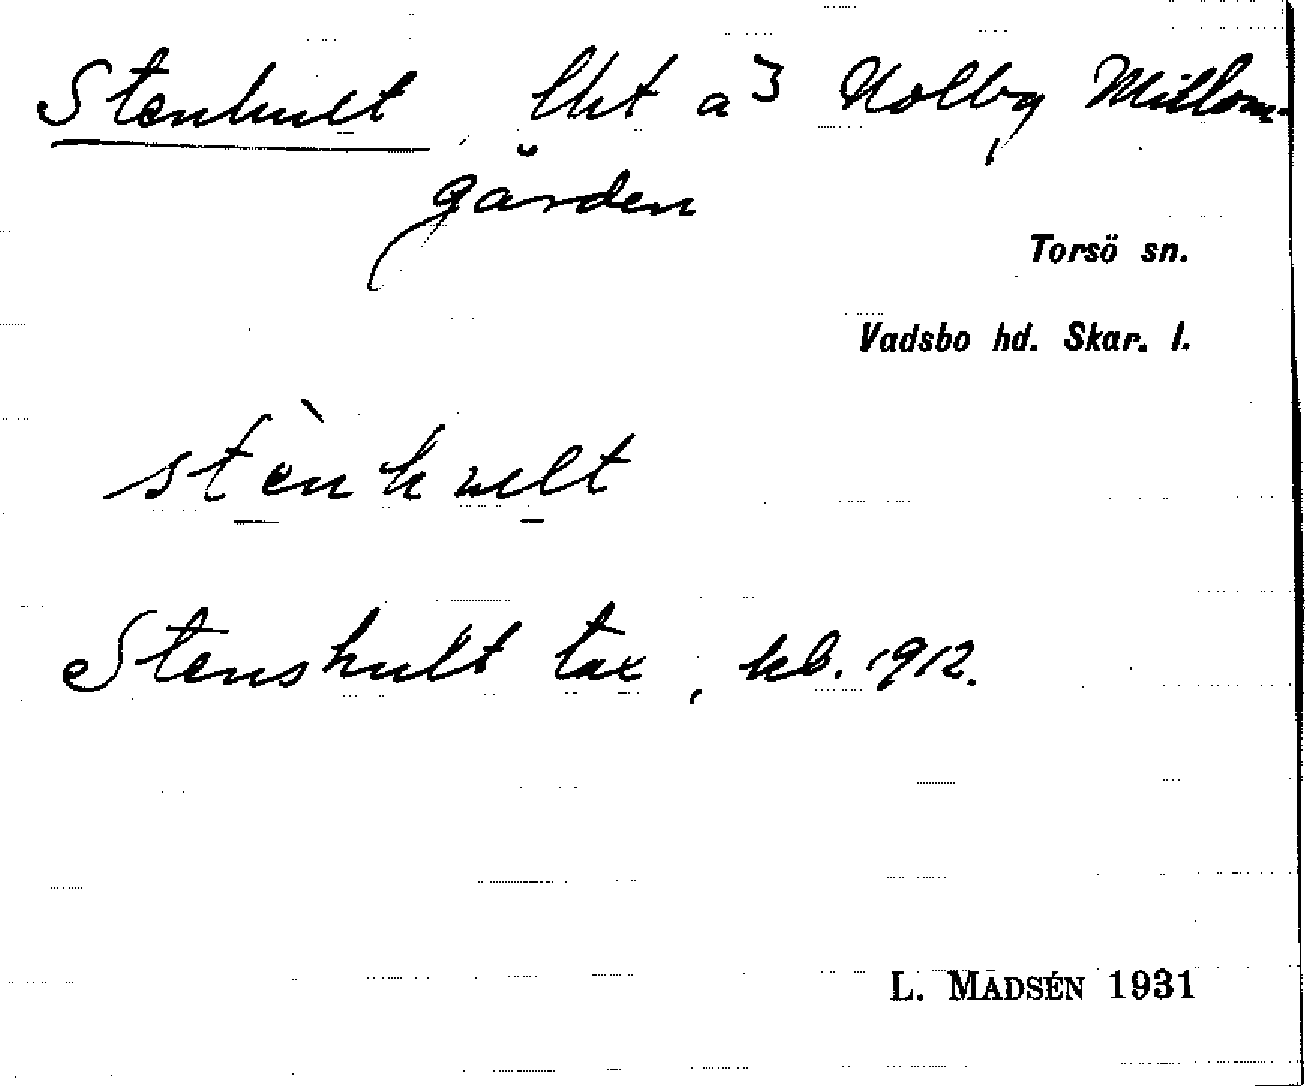 Stenhult, lht a 3 Kolby Mellom-
gården
Torsö sn.
Vadsbo hd. Skar. l.
stènhult
Stenshult tax, kb. 1912.
L. MADSÉN 1931